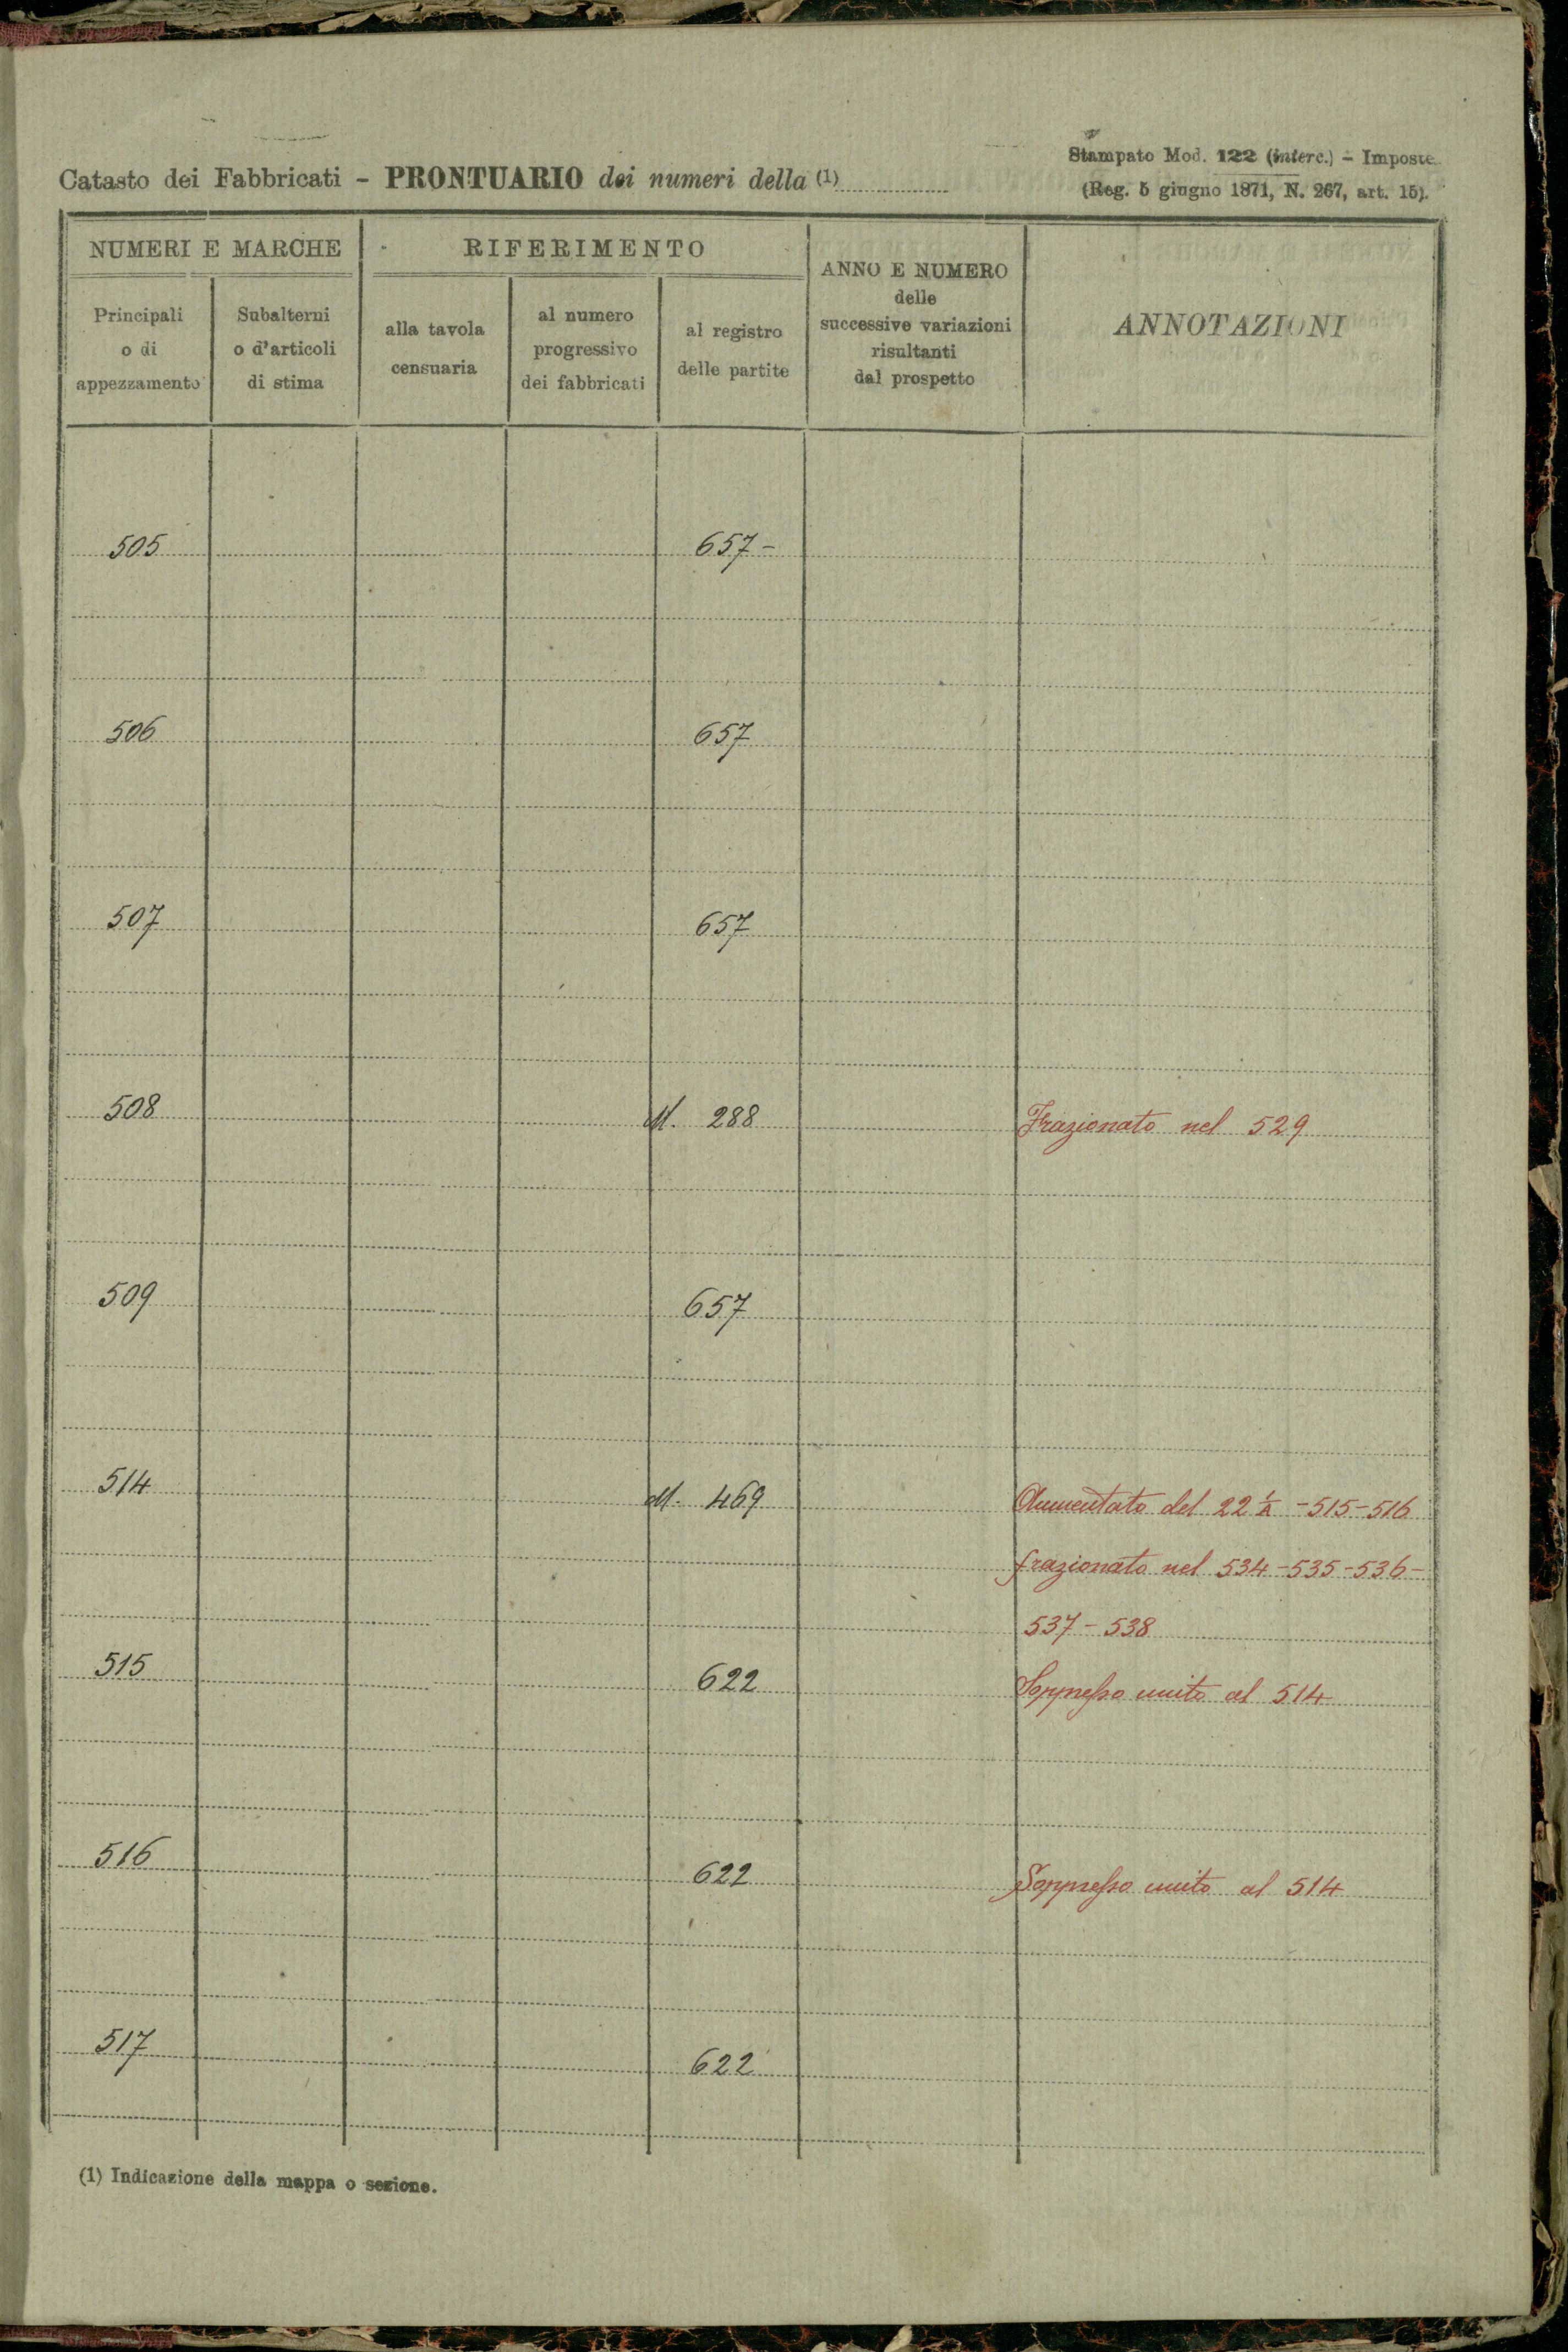 Stampato Mod. 122 (interc.) - Imposte
Catasto dei Fabbricati - PRONTUARIO dei numeri della (1)
(Reg. 5 giugno 1871, N. 267, art. 15).
NUMERI E MARCHE
Principali
o di
appezzamento
Subalterni
o d'articoli
di stima
RIFERIMENTO
alla tavola
censuaria
al numero
progressivo
dei fabbricati
al registro
delle partite
ANNO E NUMERO
delle
successive variazioni
risultanti
dal prospetto
ANNOTAZIONI
505 657 -
506 657
507 657
508 M. 288 Frazionato nel 529
509 657
514 M. 469 Aumentato del 22 1/A - 515 - 516
frazionato nel 534 - 535 - 536 -
537 - 538
515 622 Soppresso unito al 514
516 622 Soppresso unito al 514
517 622
(1) Indicazione della mappa o sezione.